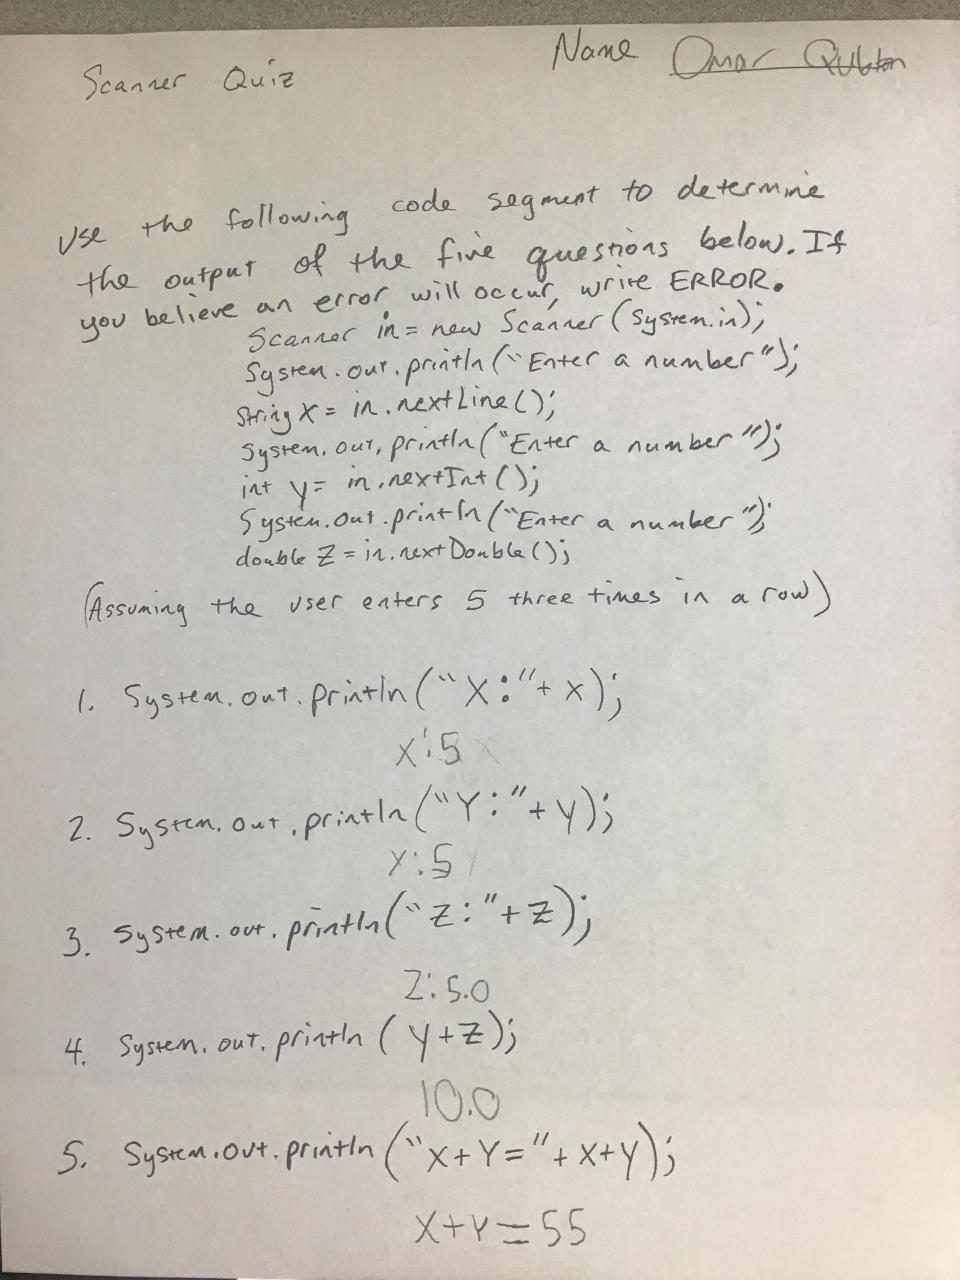 Name Omar
Scanner Quiz
Use the following code segment to determine
the output of the five questions below. If
you believe an error will occur, write ERROR.
Scanner in = new Scanner(System.in);
System.out.println("Enter a number");
String X = in.nextLine();
System.out.println("Enter a number");
int y = in.nextInt();
System.out.println("Enter a number");
double Z = in.nextDouble();
(Assuming the user enters 5 three times in a row)
1. System.out.println("X:"+ x);
X:5
2. System.out.println("Y:"+ y);
Y:5
3. System.out.println("Z:"+Z);
Z:5.0
4. System.out.println(y+Z);
10.0
5. System.out.println("X+Y="+ X+y);
X+Y=55